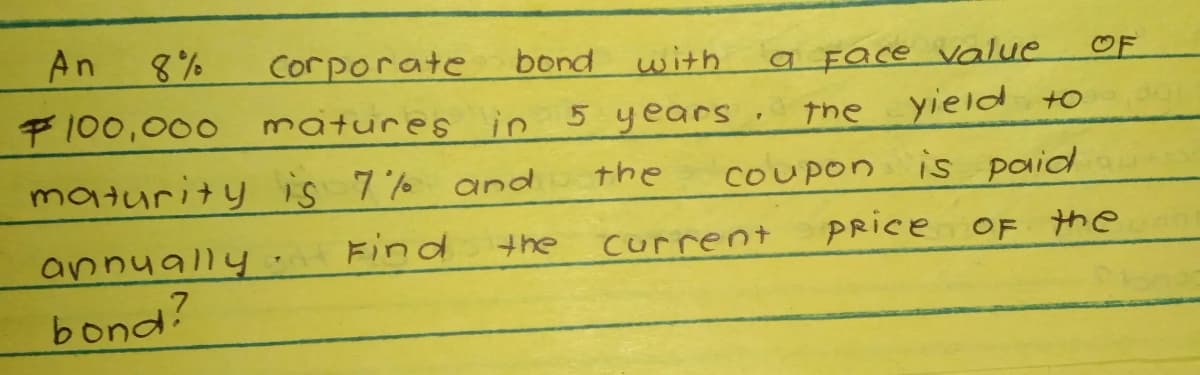 An 8% corporate bond with a Face value OF
₱100,000 matures in 5 years. The yield to
maturity is 7% and the coupon is paid
annually. Find the current pRice OF the
bond?